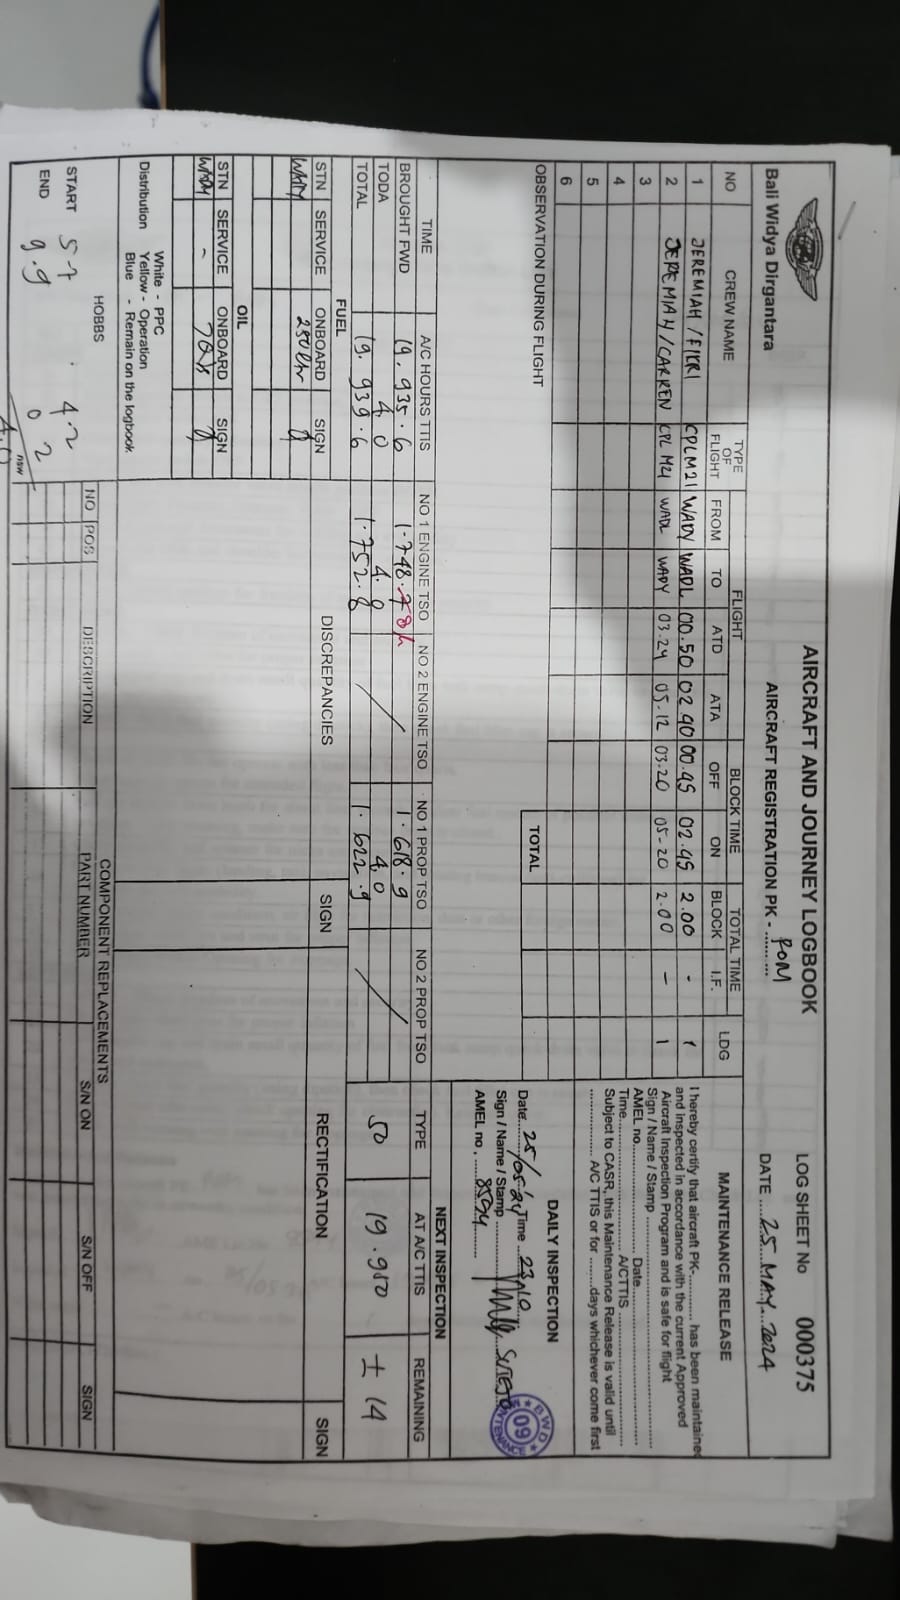 Bali Widya Dirgantara
AIRCRAFT AND JOURNEY LOGBOOK
AIRCRAFT REGISTRATION PK - ..........
LOG SHEET No 000375
DATE .... 25 MAY 2024
NO CREW NAME TYPE OF FLIGHT FLIGHT BLOCK TIME TOTAL TIME LDG
FROM TO ATD ATA OFF ON BLOCK I.F.
1 JEREMIAH / FIKRI CPLM21 WADY WADL 00.50 02 40 00.45 02.45 2.00 - 1
2 JEREMIAH / CARREN CPL M21 WADL WADY 03.24 05.12 03.20 05-20 2.00 - 1
3
4
5
6
TOTAL
OBSERVATION DURING FLIGHT
MAINTENANCE RELEASE
I hereby certify that aircraft PK-............ has been maintained
and inspected in accordance with the current Approved
Aircraft Inspection Program and is safe for flight
Sign / Name / Stamp ..........
AMEL no.......... Date..........
Time.......... A/CTTIS ..........
Subject to CASR, this Maintenance Release is valid until
.......... A/C TTIS or for .......days whichever come first
DAILY INSPECTION
Date.. 25/05-24 Time .. 23.10
Sign / Name / Stamp
AMEL no . .... 8594
BWD 09
TIME A/C HOURS TTIS NO 1 ENGINE TSO NO 2 ENGINE TSO NO 1 PROP TSO NO 2 PROP TSO
BROUGHT FWD 19. 935. 6 1.748. 1. 618. 9
TODA 4. 0 4. 0 4,0
TOTAL 19. 939. 6 1.752. 8 1. 622. 9
NEXT INSPECTION
TYPE AT A/C TTIS REMAINING
50 19.950 ± 14
FUEL
STN SERVICE ONBOARD SIGN
DISCREPANCIES SIGN RECTIFICATION SIGN
OIL
STN SERVICE ONBOARD SIGN
Distribution White - PPC
Yellow - Operation
Blue - Remain on the logbook
HOBBS
START 57 . 4.2
END 9.9 0 2
COMPONENT REPLACEMENTS
NO POS DESCRIPTION PART NUMBER S/N ON S/N OFF SIGN